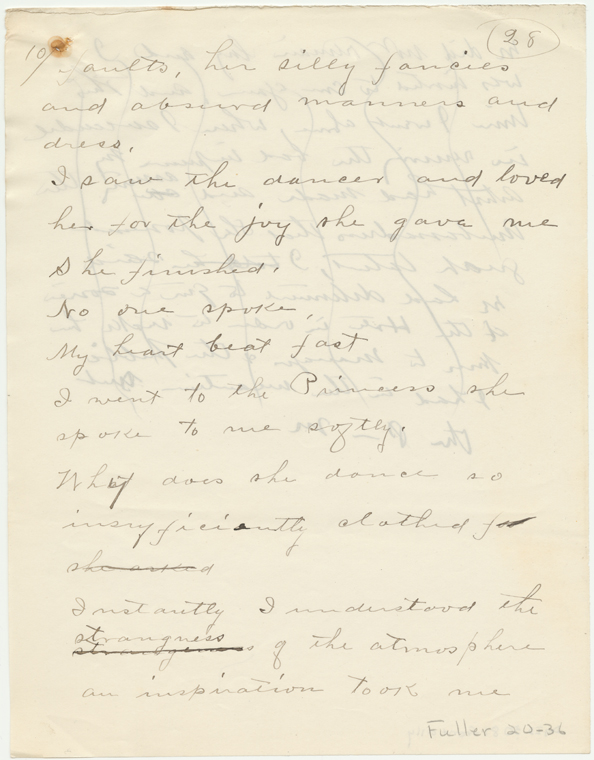 10/
28
faults, her silly fancies
and absurd manners and
dress.
I saw the dancer and loved
her for the joy she gave me
She finished.
No one spoke,
My heart beat fast
I went to the Princess she
spoke to me softly.
Why does she dance so
insufficiently clothed
she asked
Instantly I understood the
strangness
of the atmosphere
an inspiration took me
Fuller 20-36